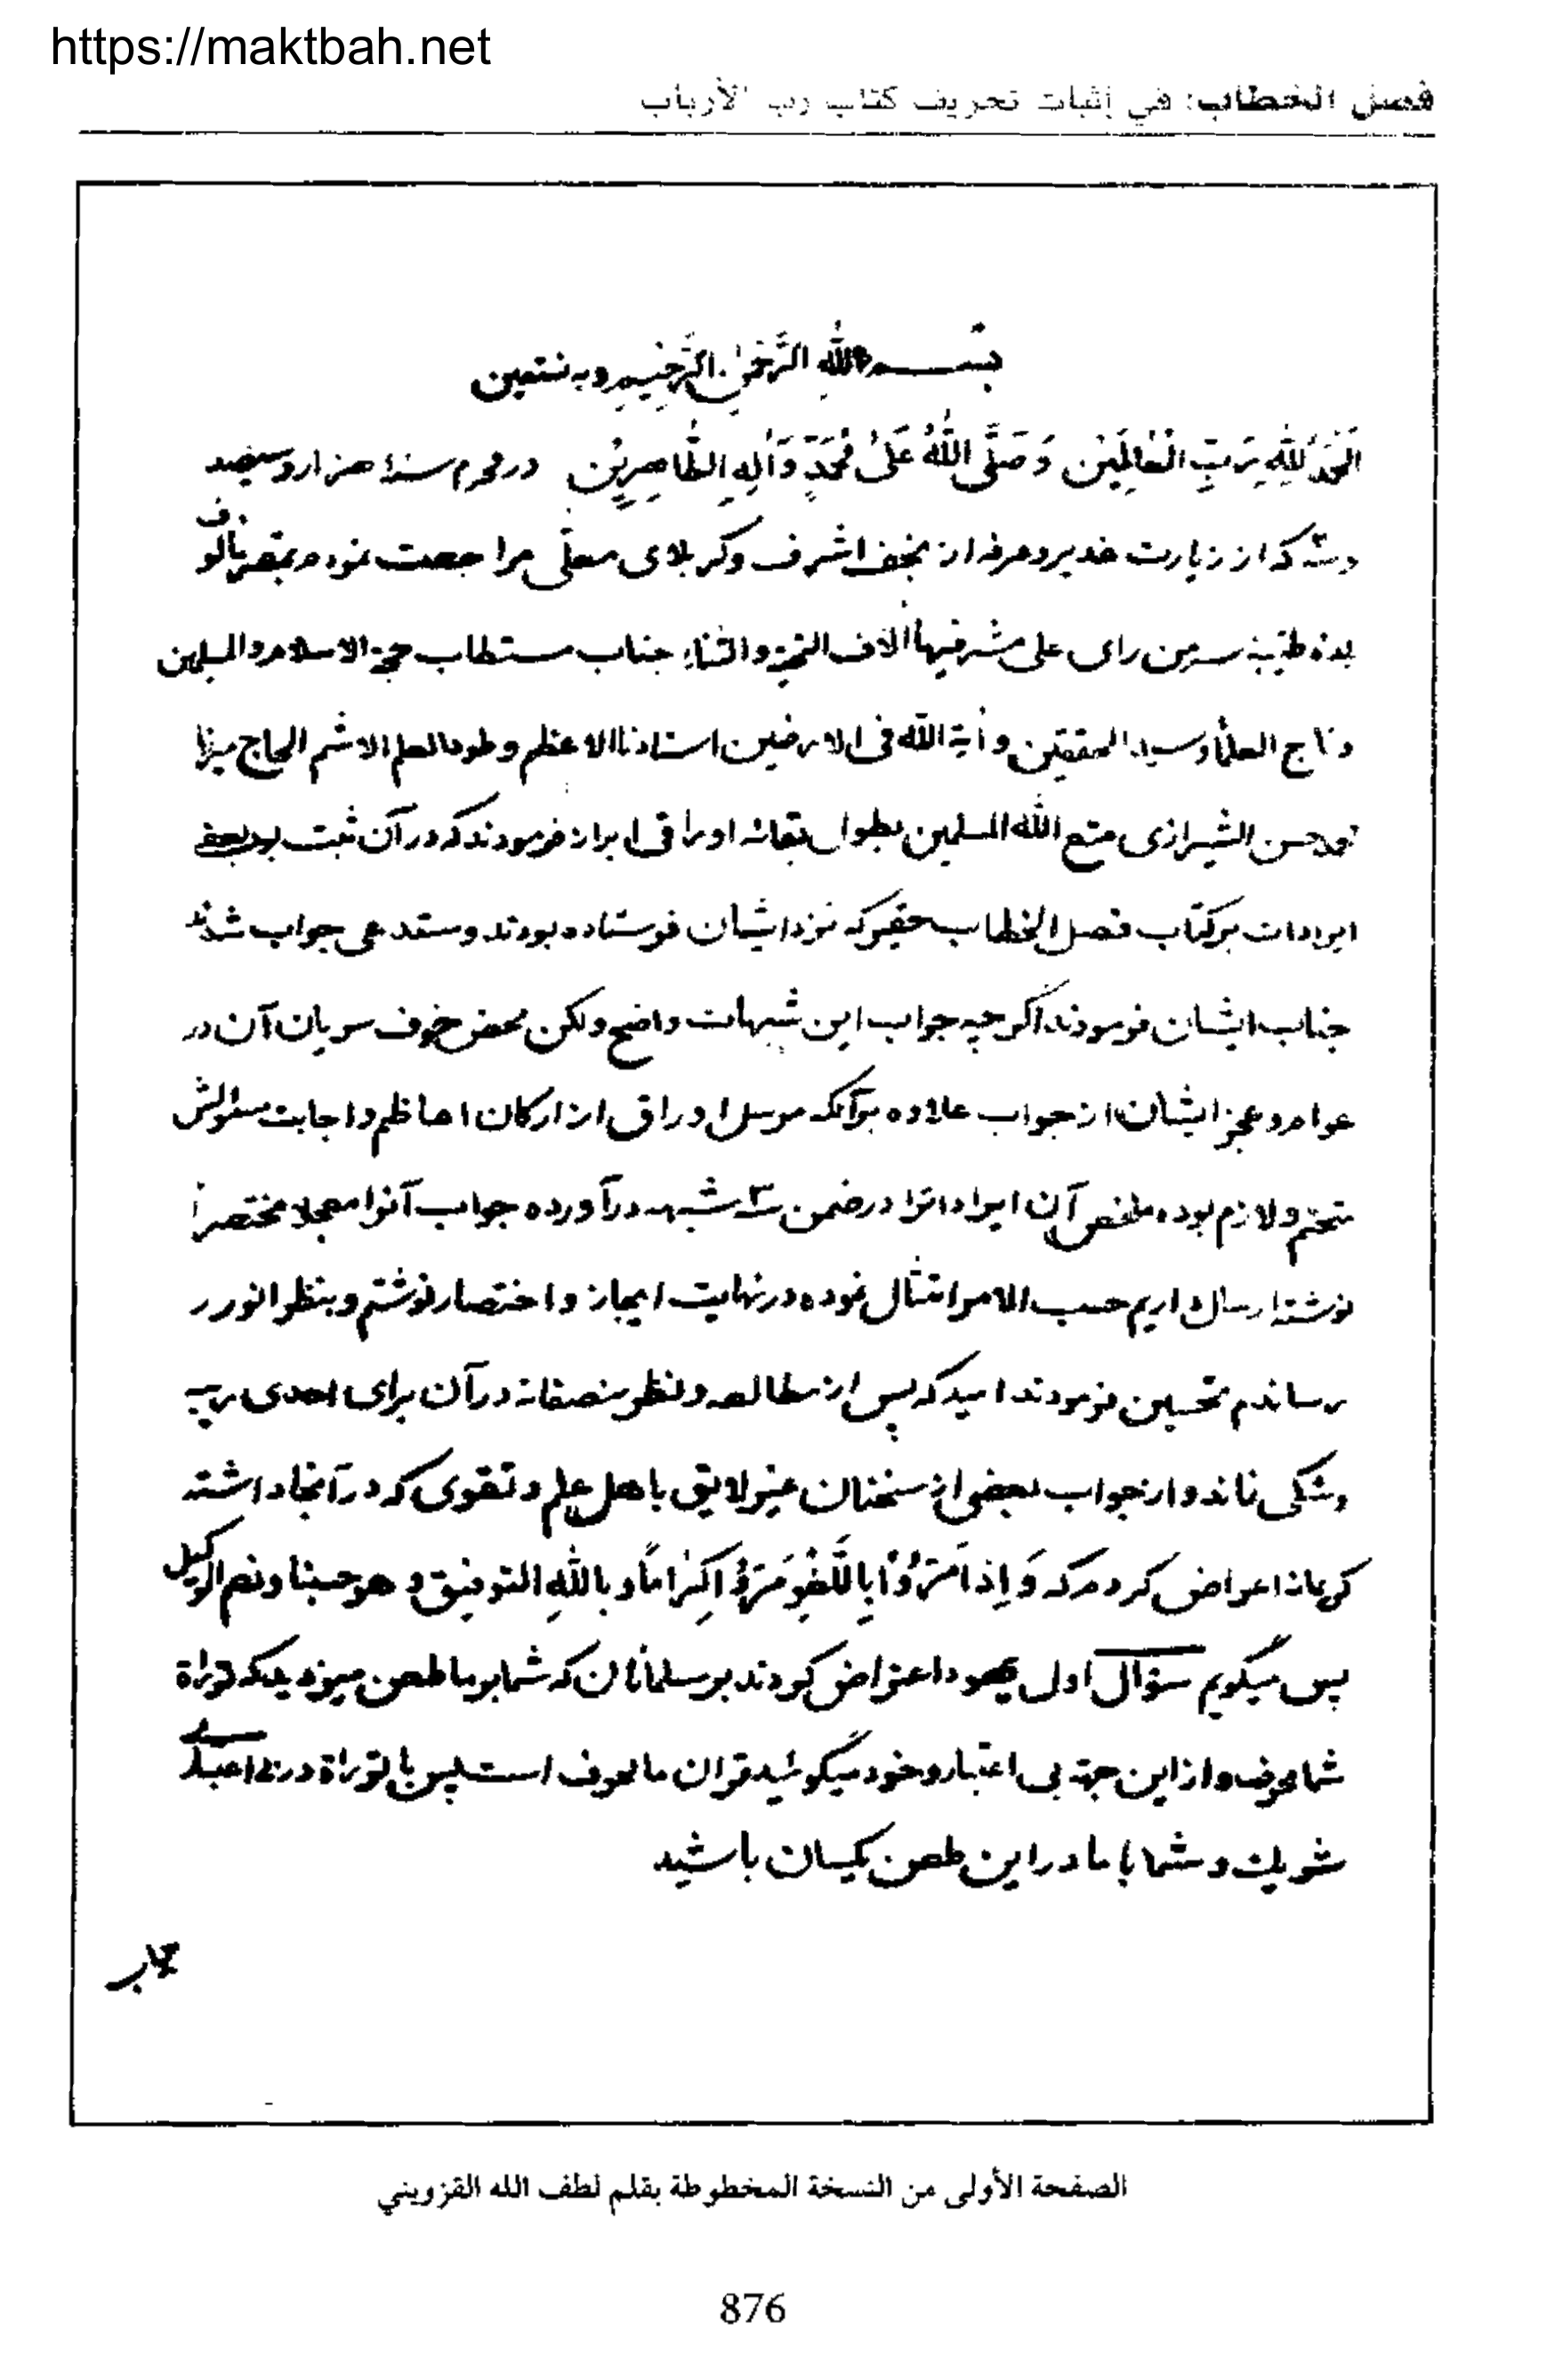 https://maktbah.net
فصل الخطاب: في إثبات تحريف كتاب رب الأرباب
بسم الله الرحمن الرحیم وبه نستعین
اَلْحَمْدُ لِلّٰهِ رَبِّ الْعَالَمَیْن وَ صَلَّی اللهُ عَلیٰ مُحَمَّدٍ وَ اٰلِهِ الطَّاهِرِیْن در محرم سنهٔ هزار و سیصد
و سه که از زیارت غدیر و عرفه از نجف اشرف و کربلای معلّی مراجعت نموده بمقر مألوف
بلده طیبه سر من رای علی مشرفیها الاف التحیة والثناء جناب مستطاب حجة الاسلام والمسلمین
و تاج العلماء و سید المحققین و اٰیة الله فی الارضین استادنا الاعظم و طود العلم الاشم الحاج میرزا
محمد حسن الشیرازی متع الله المسلمین بطول بقائه اوراقی ابراز فرمودند که در آن ثبت بود بعضی
ایرادات بر کتاب فصل الخطاب حقیر که نزد ایشان فرستاده بودند و مستدعی جواب شدند
جناب ایشان فرمودند اگر چه جواب این شبهات واضح ولکن محض خوف سریان آن در
عوام و عجز ایشان از جواب علاوه بر آنکه مرسل اوراق از ارکان اعاظم و اجابت مسئولش
متحتم و لازم بوده ملخص آن ایرادات را در ضمن سه شبهه در آورده جواب آنرا معجلا مختصراً
نوشته ارسال داریم حسب الامر امتثال نموده در نهایت ایجاز و اختصار نوشتم و بنظر انور
رساندم تحسین فرمودند امید که پس از مطالعه و نظر منصفانه در آن برای احدی ریب
و شکی نماند و از جواب بعضی از سخنان غیر لایق باهل علم و تقوی که در آنجا داشته
کریمانه اعراض کردم که وَ اِذا مَرُّوْا بِاللَّغْوِ مَرُّوْا کِرَاماً و بالله التوفیق و هو حسبنا و نعم الوکیل
پس میگویم سؤال اول یهود اعتراض کردند بر مسلمانان که شما بر ما طعن میزنید که توراة
شما محرف و از این جهة بی اعتبار و خود میگوئید قران ما محرف است پس با توراة در بی اعتباری
شریک و شما با ما در این طعن یکسان باشید
الصفحة الأولى من النسخة المخطوطة بقلم لطف الله القزويني
876